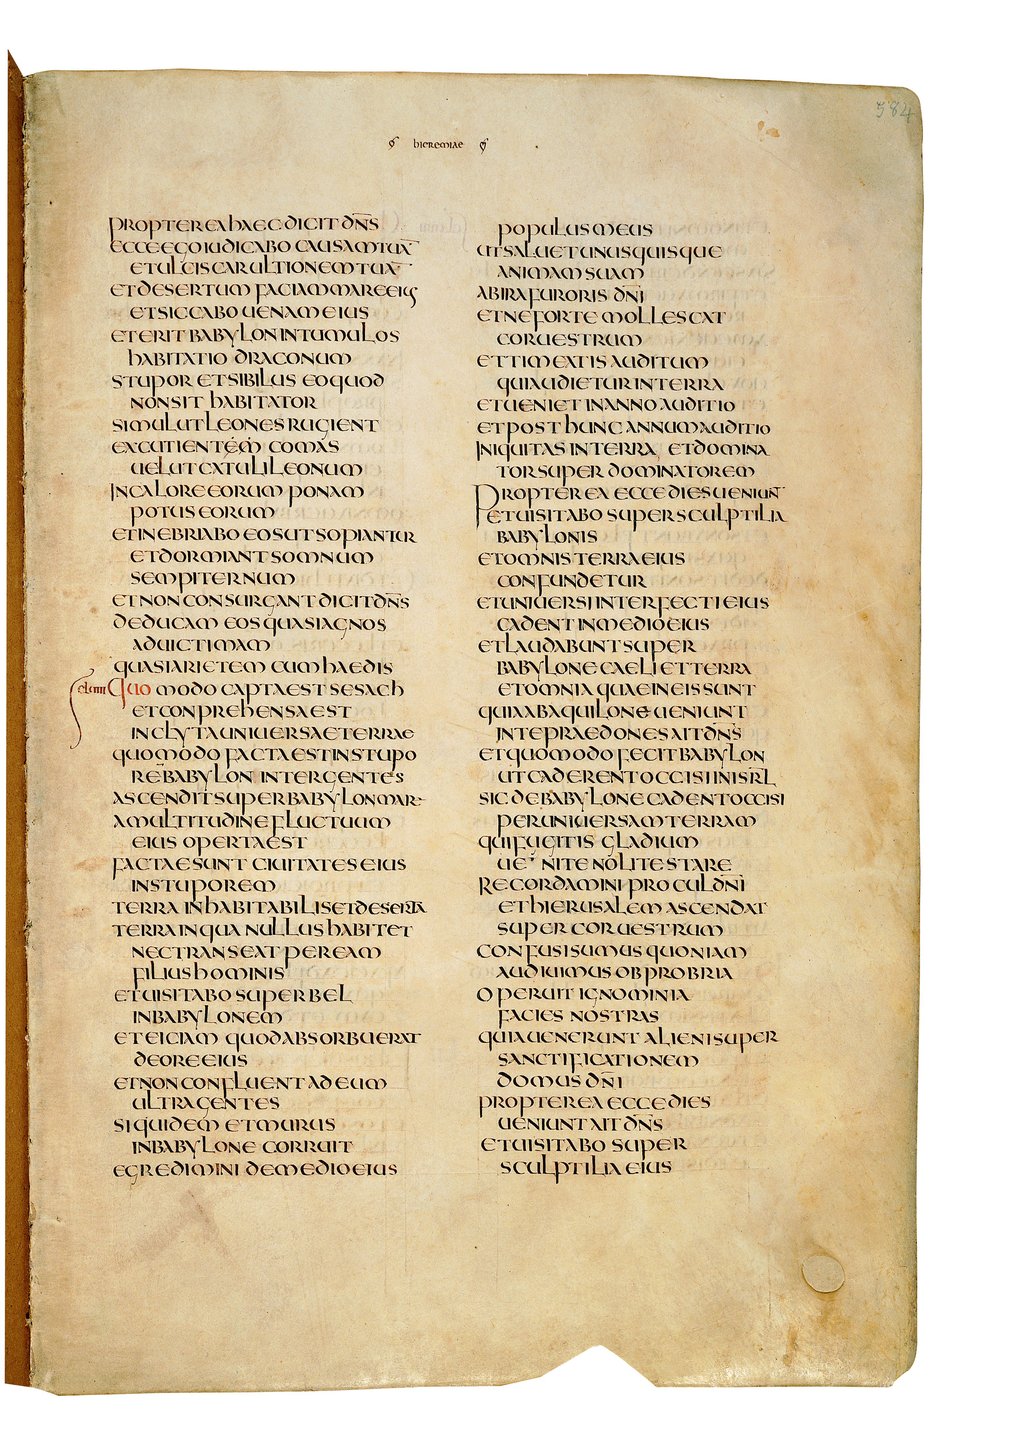 584
hieremiae
propterea haec dicit dn̄s
ecce ego iudicabo causam tuā
et ulciscar ultionem tuā
et desertum faciam mare eius
et siccabo uenam eius
et erit babylon in tumulos
habitatio draconum
stupor et sibilus eo quod
non sit habitator
simul ut leones rugient
excutient comas
uelut catuli leonum
in calore eorum ponam
potus eorum
et inebriabo eos ut sopiantur
et dormiant somnum
sempiternum
et non consurgant dicit dn̄s
deducam eos quasi agnos
ad uictimam
quasi arietem cum haedis
Quo modo capta est sesach
et conprehensa est
inclyta uniuersae terrae
quomodo facta est in stupo
rē babylon inter gentes
ascendit super babylon mare
a multitudine fluctuum
eius operta est
factae sunt ciuitates eius
in stuporem
terra inhabitabilis et deserta
terra in qua nullus habitet
nec transeat per eam
filius hominis
et uisitabo super bel
in babylonem
et eiciam quod absorbuerat
de ore eius
et non confluent ad eum
ultra gentes
siquidem et murus
in babylone corruit
egredimini de medio eius
populus meus
ut saluet unusquisque
animam suam
ab ira furoris dn̄i
et ne forte mollescat
cor uestrum
et timeatis auditum
qui audietur in terra
et ueniet in anno auditio
et post hunc annum auditio
iniquitas in terra et domina
tor super dominatorem
Propterea ecce dies ueniunt
et uisitabo super sculptilia
babylonis
et omnis terra eius
confundetur
et uniuersi interfecti eius
cadent in medio eius
et laudabunt super
babylone caeli et terra
et omnia quae in eis sunt
quia ab aquilone ueniunt
inte praedones ait dn̄s
et quomodo fecit babylon
ut caderent occisi in isrl̄
sic de babylone cadent occisi
per uniuersam terram
qui fugitis gladium
uenite nolite stare
recordamini procul dn̄i
et hierusalem ascendat
super cor uestrum
confusi sumus quoniam
audiuimus obprobria
operuit ignominia
facies nostras
quia uenerunt alieni super
sanctificationem
domus dn̄i
propterea ecce dies
ueniunt ait dn̄s
et uisitabo super
sculptilia eius